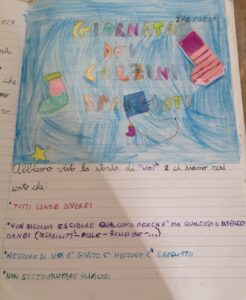 024
2/2/2024
GIORNATA
DEI
CALZINI
SPAIATI
che
Abbiamo visto la storia di "NOI" e ci siamo resi
conto che:
*TUTTI SIAMO DIVERSI
*NON BISOGNA ESCLUDERE QUALCUNO PERCHÉ HA QUALCOSA DI DIVERSO
DA NOI (DISABILITÀ-PELLE-RELIGIONE-...)
*NESSUNO DI NOI È GIUSTO E NESSUNO È SBAGLIATO
*NON SOTTOVALUTARE GLI ALTRI